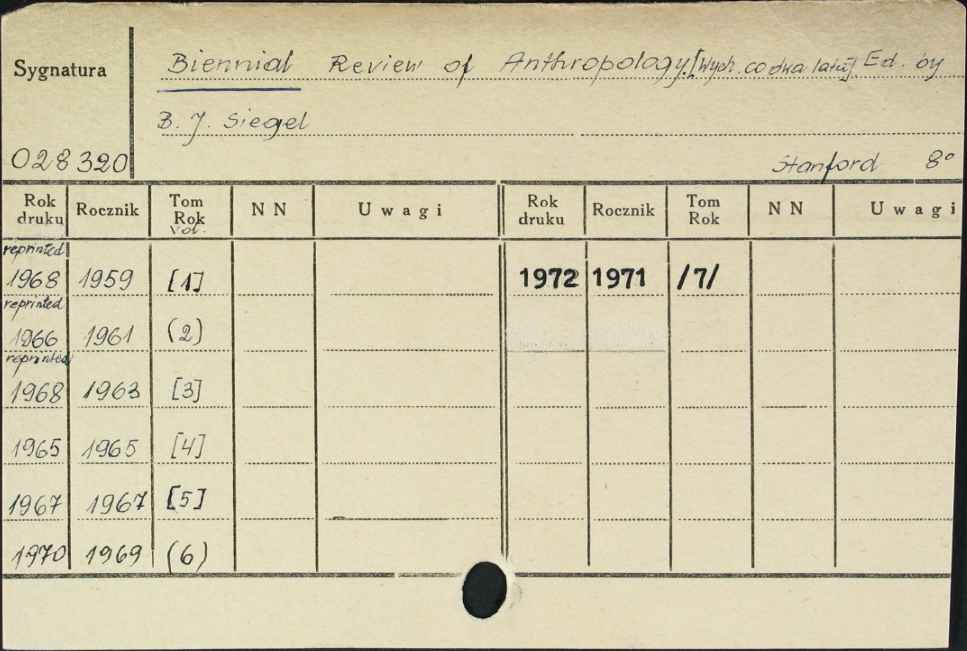 Sygnatura
Biennial Review of Anthropology. [Wych. co dwa lata]. Ed. by
B. J. Siegel
028320
Stanford 8°
Rok druku Rocznik Tom Rok Vol. N N Uwagi Rok druku Rocznik Tom Rok N N Uwagi
reprinted
1968 1959 [1] 1972 1971 /7/
reprinted
1966 1961 (2)
reprinted
1968 1963 [3]
1965 1965 [4]
1967 1967 [5]
1970 1969 (6)